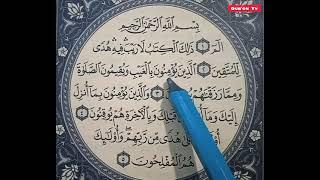 Dum'on Tv
بِسْمِ اللَّهِ الرَّحْمَٰنِ الرَّحِيمِ
الٓمٓ ١ ذَٰلِكَ الْكِتَابُ لَا رَيْبَ فِيهِ هُدًى
لِّلْمُتَّقِينَ ٢ الَّذِينَ يُؤْمِنُونَ بِالْغَيْبِ وَيُقِيمُونَ الصَّلَاةَ
وَمِمَّا رَزَقْنَاهُمْ ٣ وَالَّذِينَ يُؤْمِنُونَ بِمَا أُنزِلَ
إِلَيْكَ وَمَا قَبْلِكَ وَبِالْآخِرَةِ هُمْ يُوقِنُونَ ٤
هُدًى مِّن رَّبِّهِمْ وَأُولَٰئِكَ
هُمُ الْمُفْلِحُونَ ٥